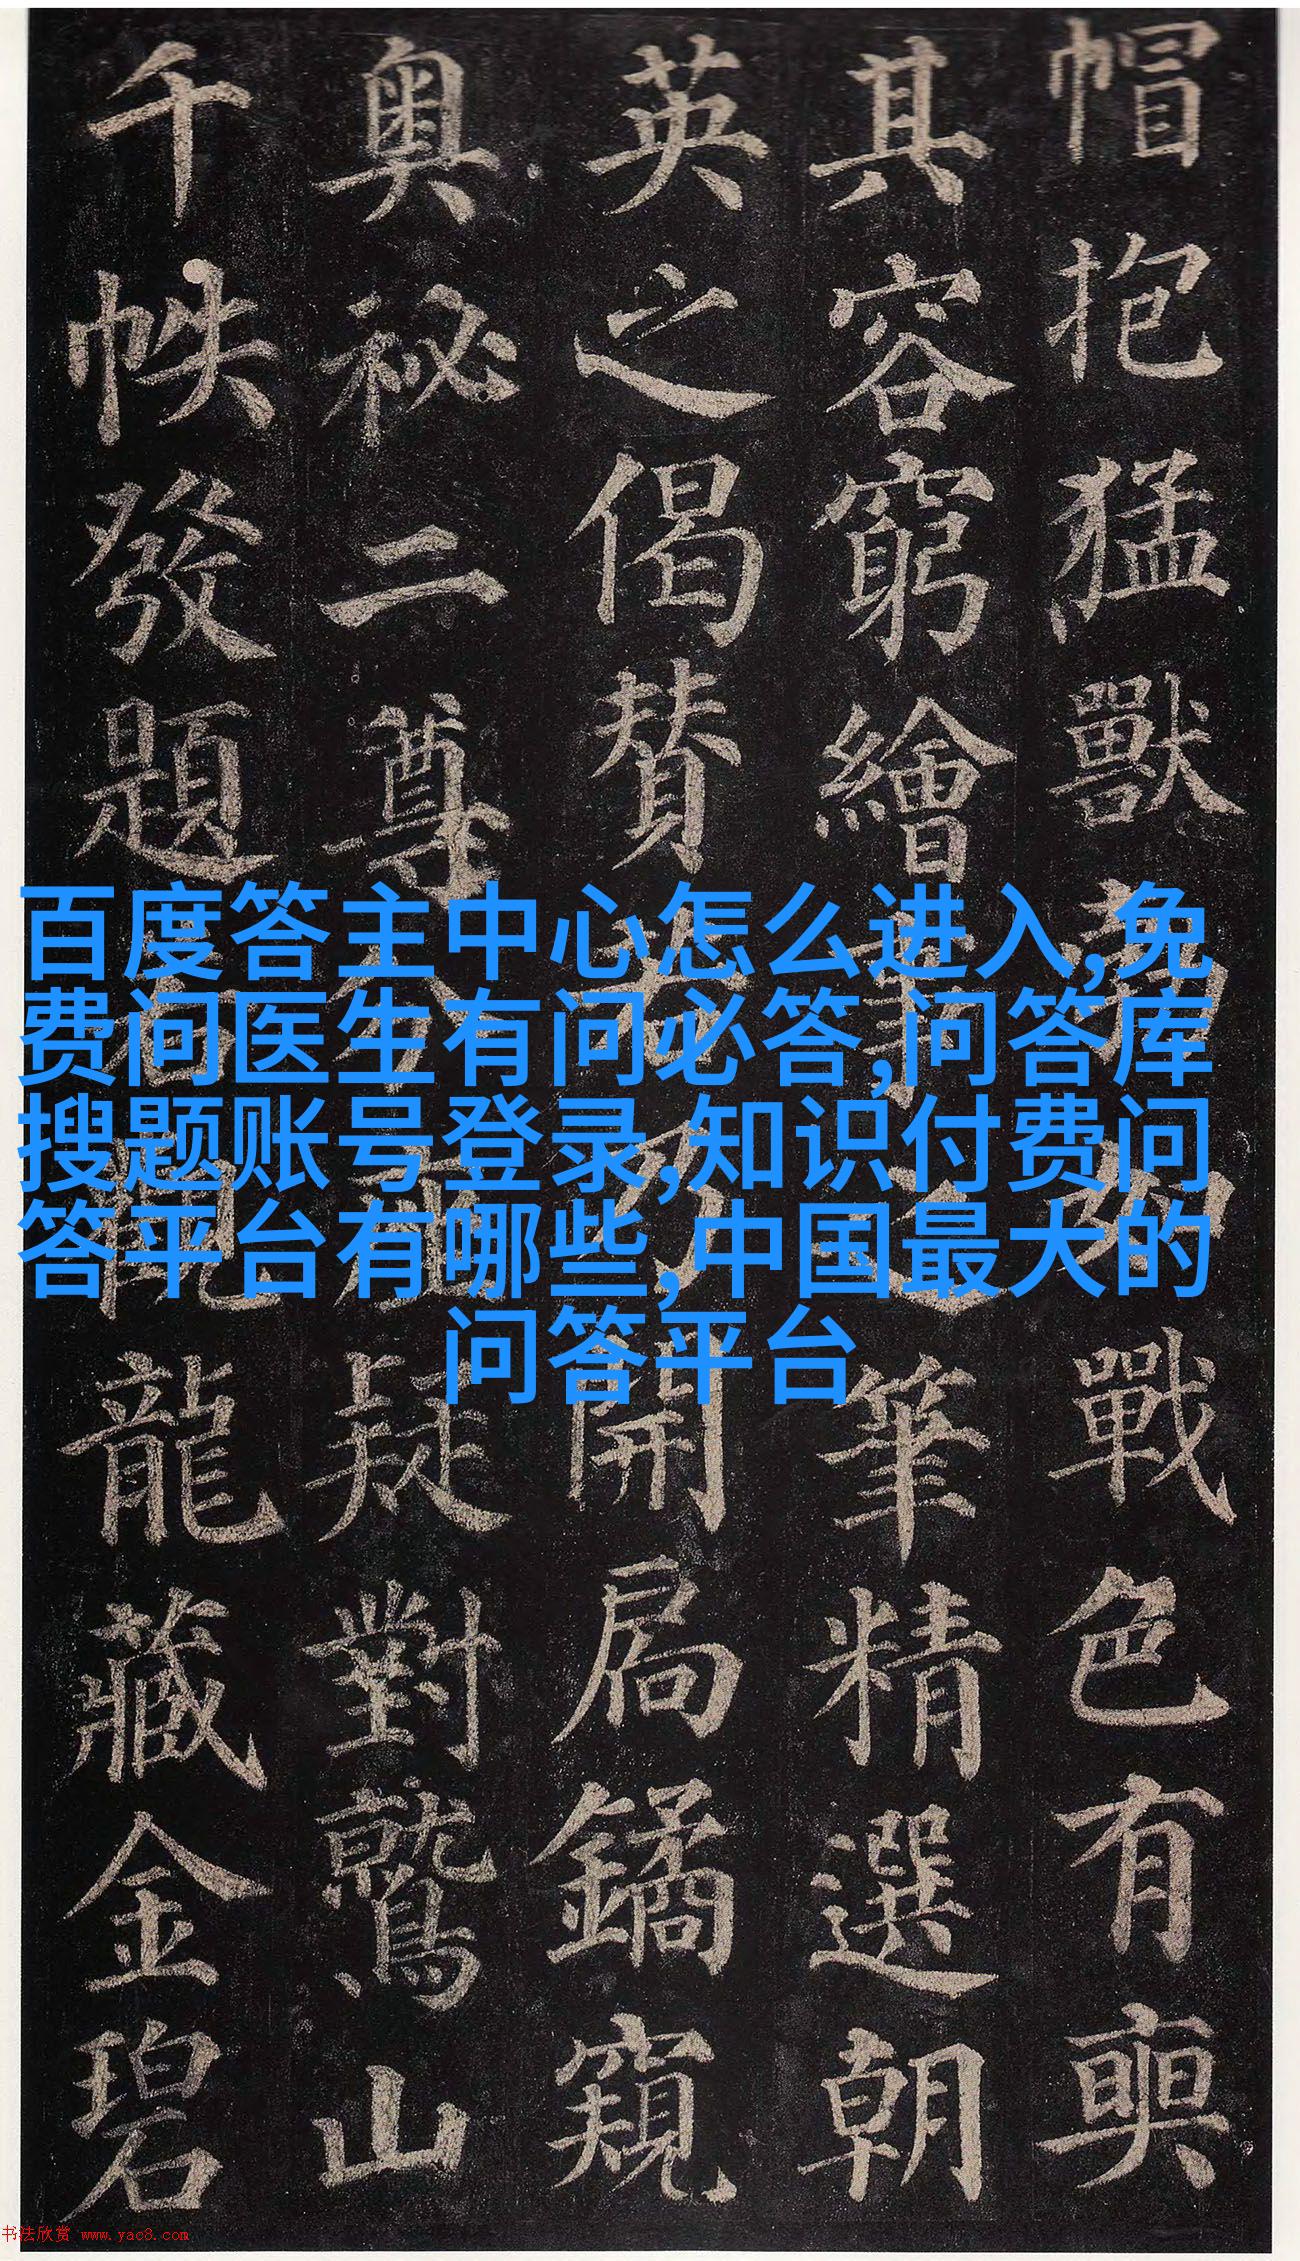 帽抱猛獸勃如戰色有奭
其容窮繪事之筆精選朝
英之偈贊乃開扃鐍窺
奧祕二尊分座疑對鷲山
千帙發題若觀龍藏金碧
百度答主中心怎么进入,免
费问医生有问必答,问答库
搜题账号登录,知识付费问
答平台有哪些,中国最大的
问答平台
书法欣赏 www.yac8.com